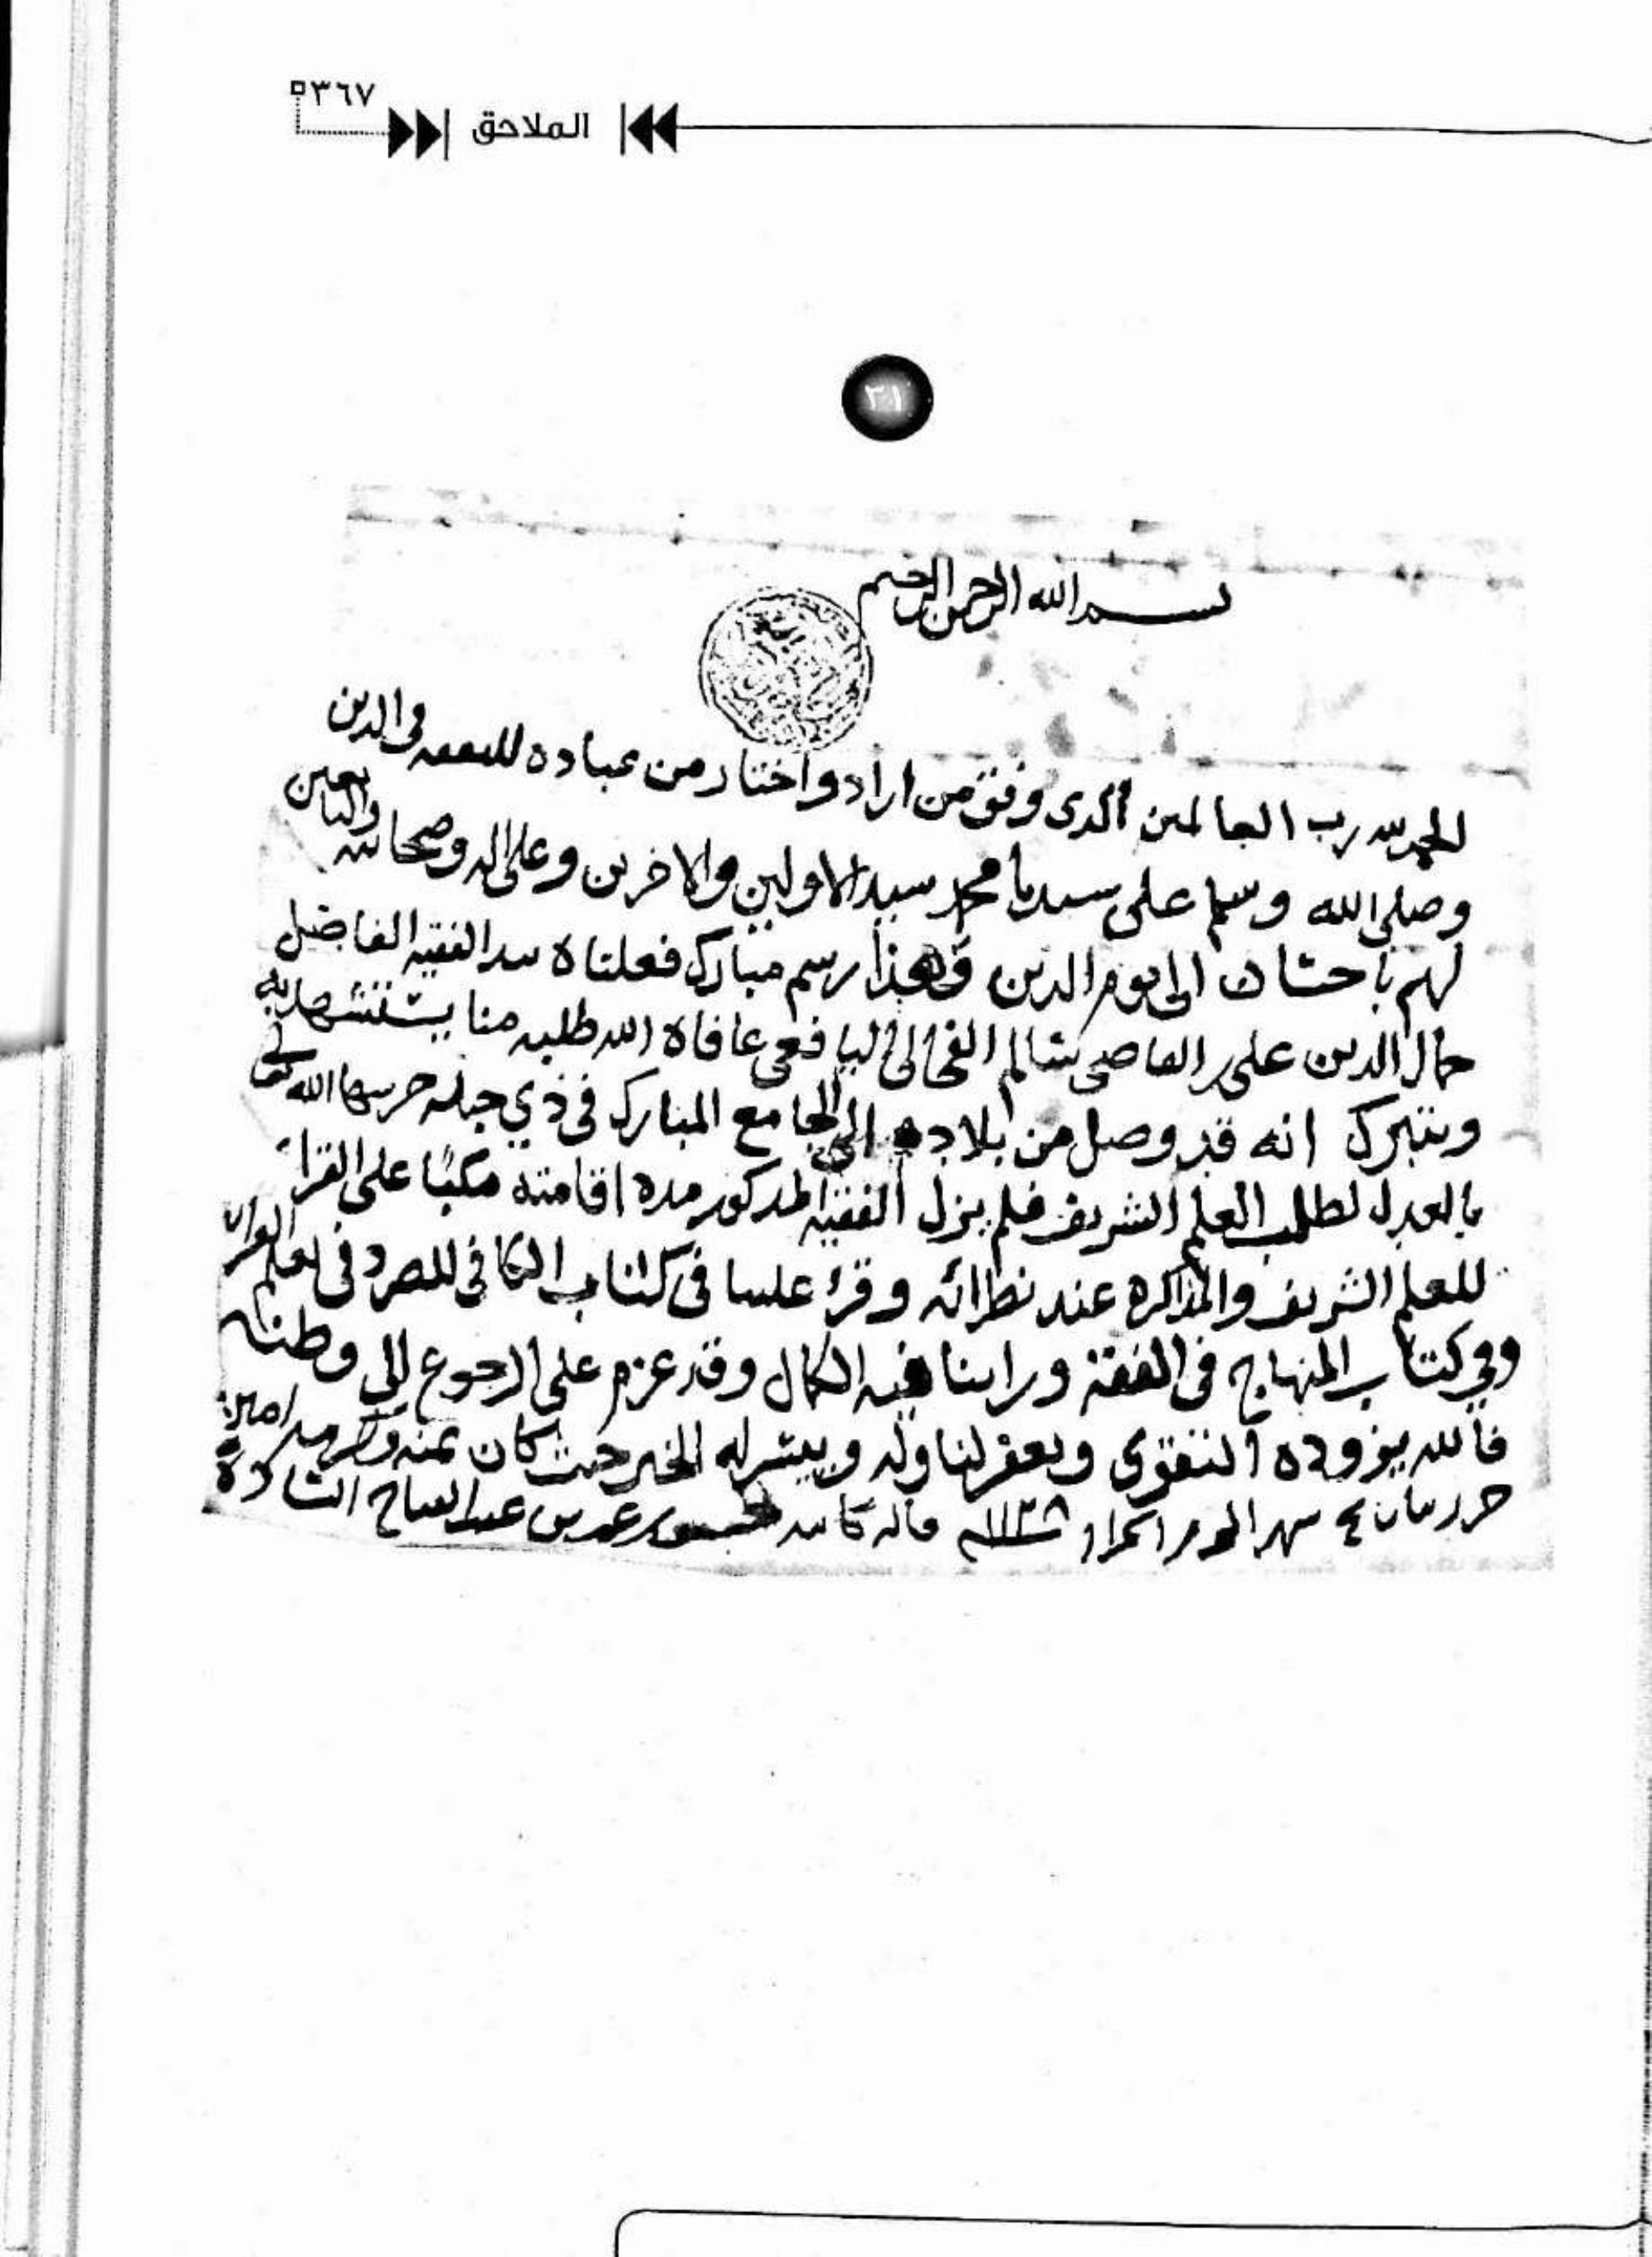 ٣٦٧
الملاحق
٢١
بسم الله الرحمن الرحيم
الحمد لله رب العالمين الذى وفق من اراد واختار من عباده للتفقه في الدين
وصلى الله وسلم على سيدنا محمد سيد الاولين والاخرين وعلى اله وصحابته والتابعين
لهم باحسان الى يوم الدين هذا رسم مبارك فعلناه بيد الفقيه الفاضل
جمال الدين على القاضى سالم اليافعى عافاه الله طلبه منا يستشهد به
ويتبرك انه قد وصل من بلاده الى الجامع المبارك في ذي جبله حرسها الله تعالى
بالعدل لطلب العلم الشريف فلم يزل الفقيه المذكور مدة اقامته مكبًا على القراءة
للعلم الشريف والمذاكرة عند نظرائه وقرء علينا في كتاب الكافي للصردفي
وفي كتاب المنهاج في الفقه وراينا فيه الكمال وقد عزم على الرجوع الى وطنه
فالله يزوده التقوى ويغفر لنا وله وييسر له الخير حيث كان بمنه وكرمه امين
حرر شهر المحرم الحرام ١١٣٨ قاله كاتبه